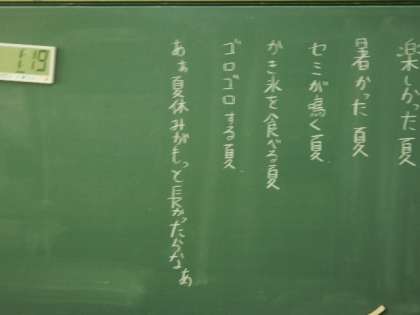 楽しかった夏
暑かった夏
セミが鳴く夏
かき氷を食べる夏
ゴロゴロする夏
あぁ夏休みがもっと長かったらなぁ
1:19